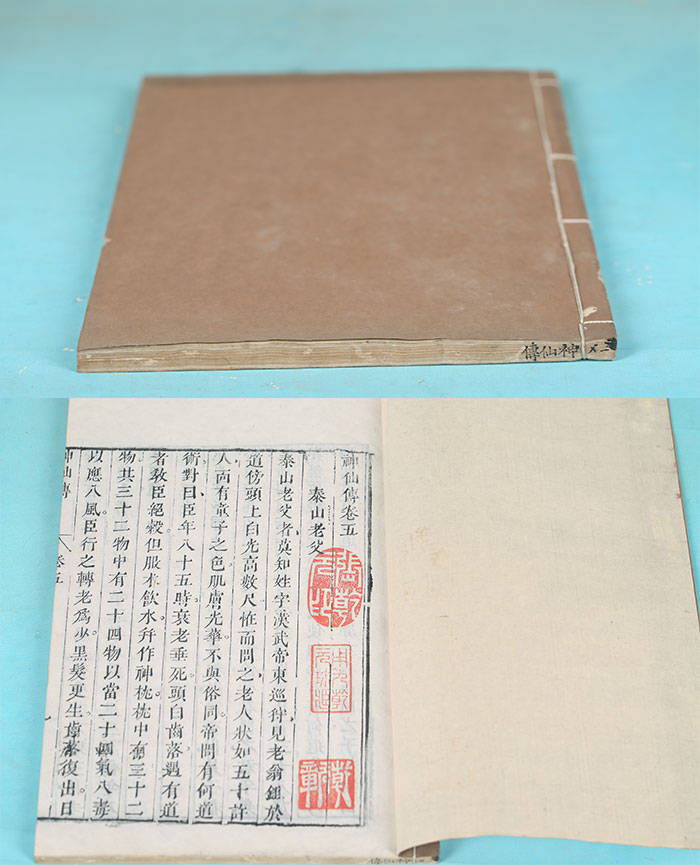 神仙傳
神仙傳卷五
泰山老父
泰山老父者莫知姓字漢武帝東巡狩見老翁鋤於
道傍頭上白光高數尺怪而問之老人狀如五十許
人面有童子之色肌膚光華不與俗同帝問有何道
術對曰臣年八十五時衰老垂死頭白齒落遇有道
者教臣絕穀但服朮飲水并作神枕枕中有三十二
物共三十二物中有二十四物以當二十四氣八毒
以應八風臣行之轉老爲少黑髮更生齒落復出日
神仙傳 卷五